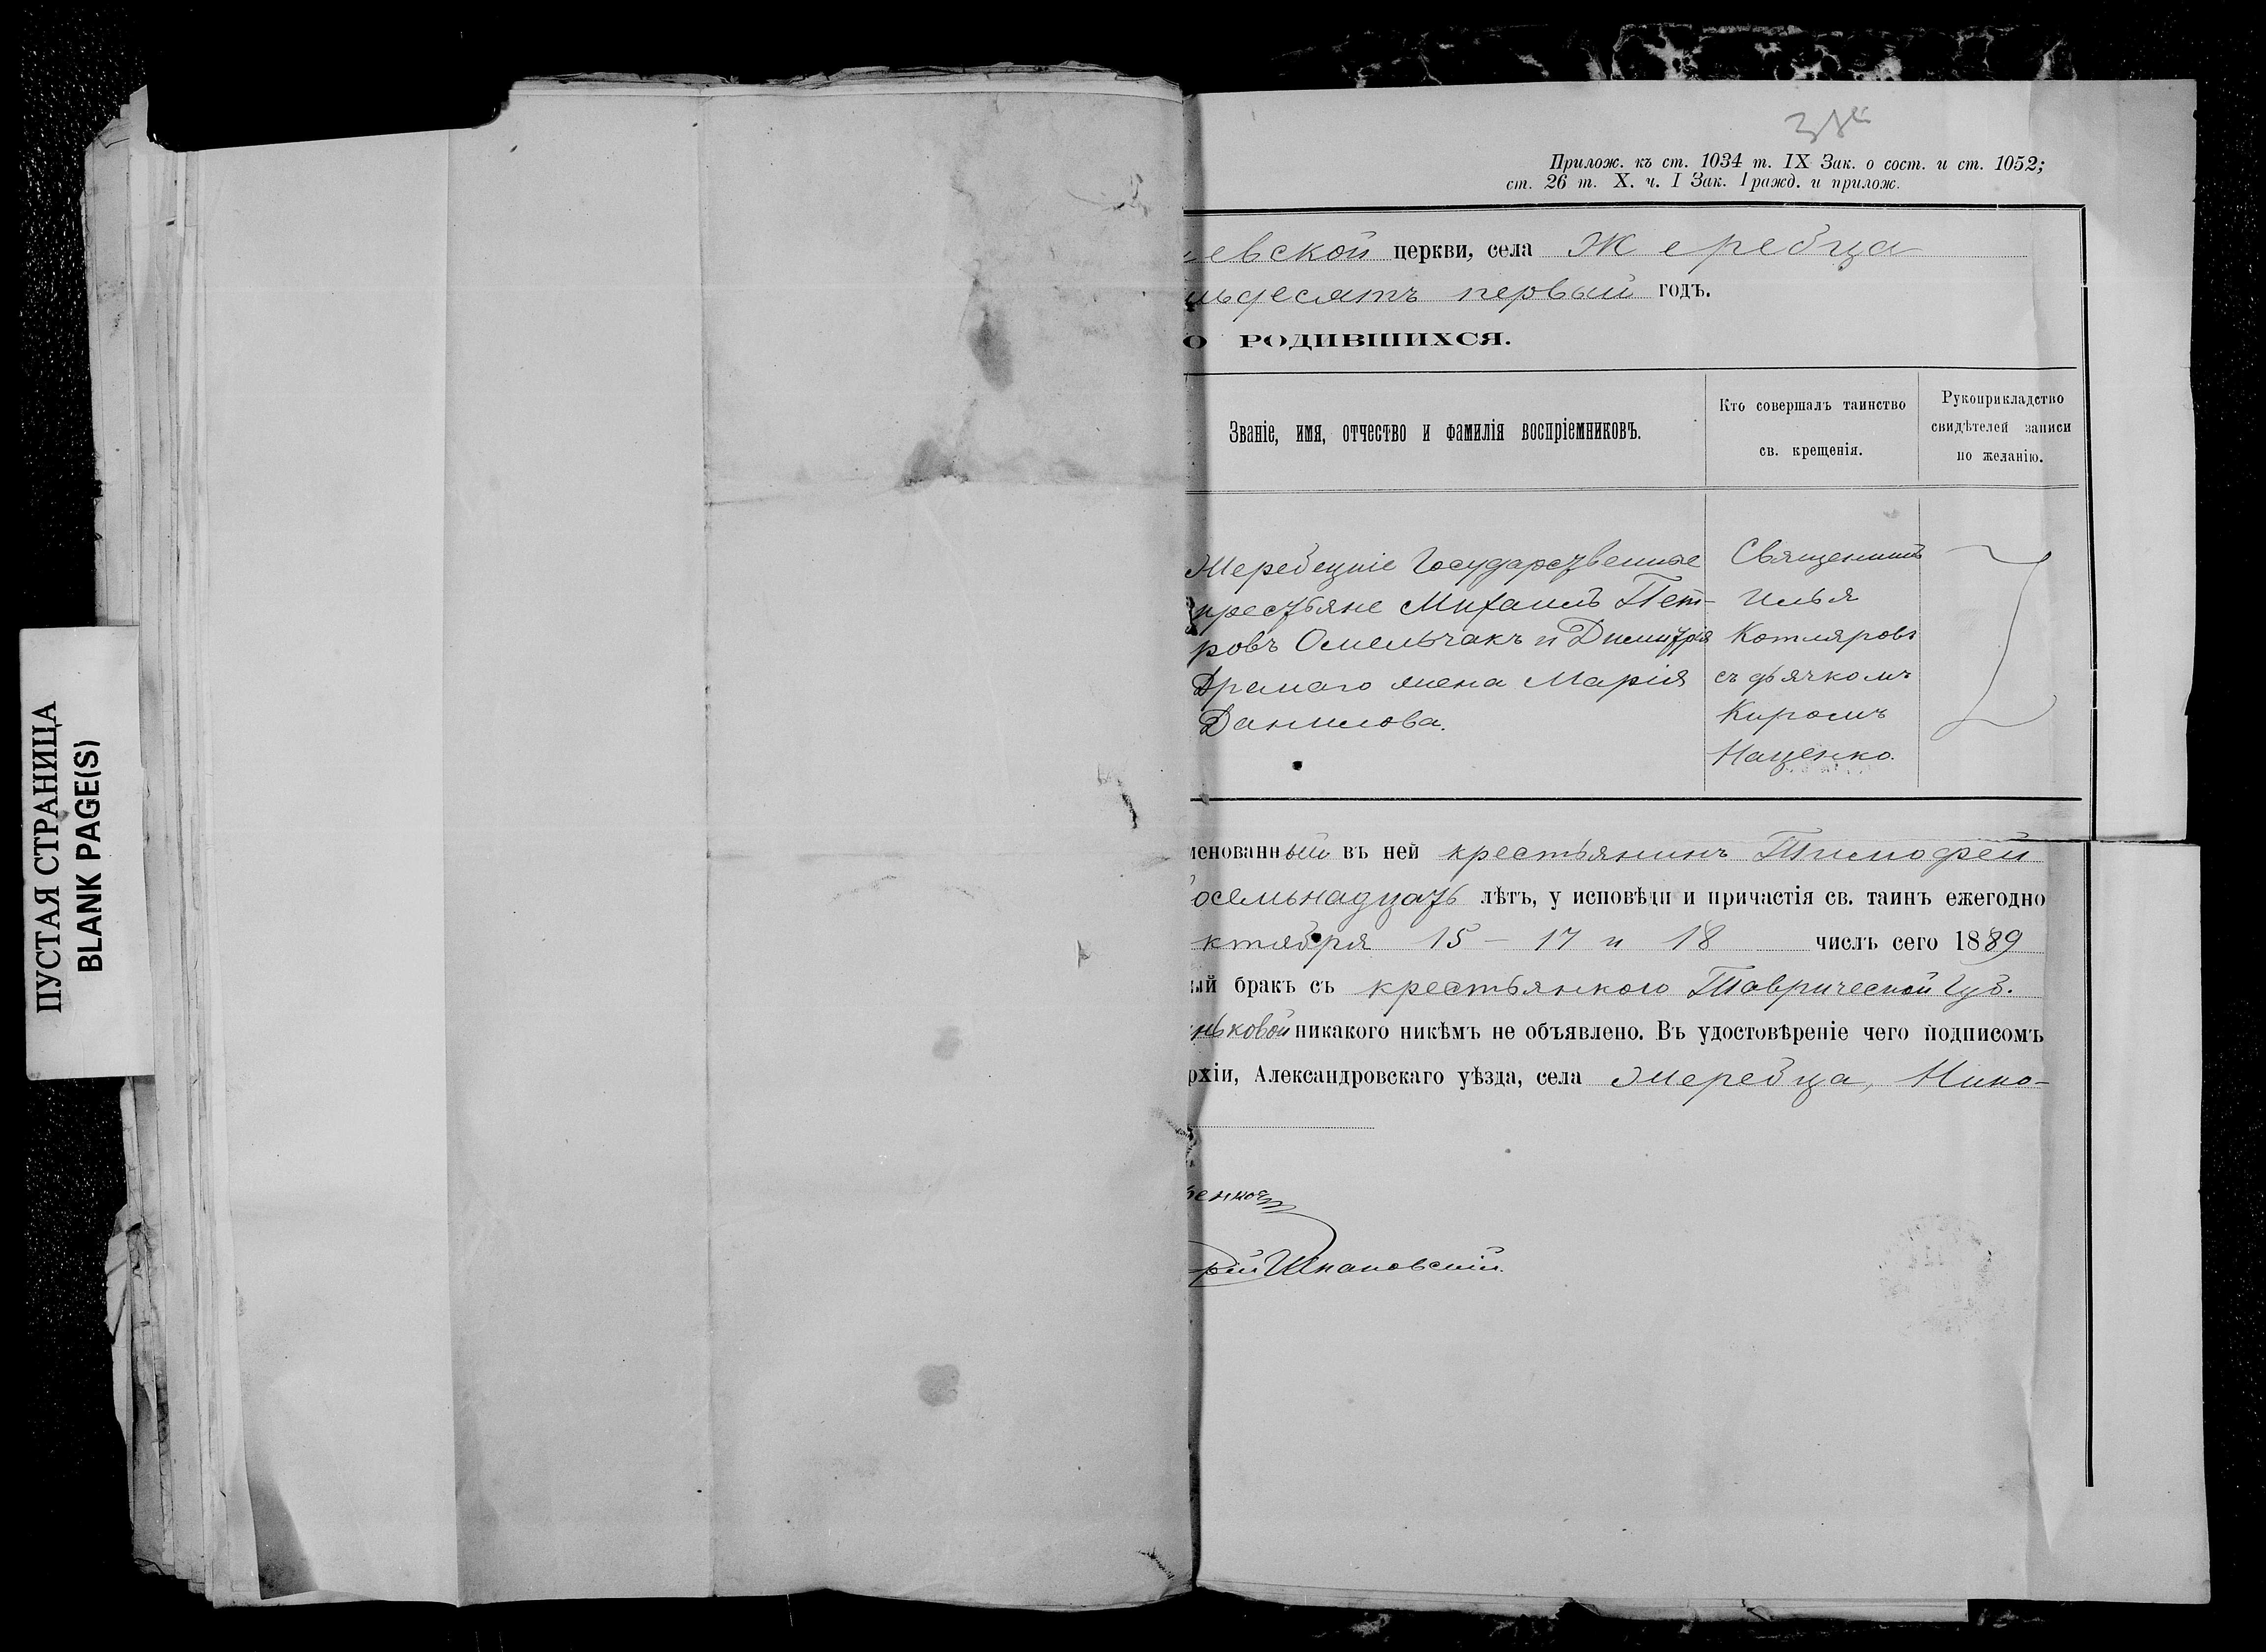 ПУСТАЯ СТРАНИЦА
BLANK PAGE(S)
Прилож. къ ст. 1034 т. IX Зак. о сост. и ст. 1052;
ст. 26 т. X. ч. I Зак. Гражд. и прилож.
евской церкви, села Жеребца
ьдесятъ первый годъ.
О РОДИВШИХСЯ.
Званіе, имя, отчество и фамилія воспріемниковъ.
Кто совершалъ таинство
св. крещенія.
Рукоприкладство
свидѣтелей записи
по желанію.
Жеребецкіе Государственные
крестьяне Михаилъ Пет-
ровъ Омельчакъ и Димитрія
жена Марія
Данилова.
Священникъ
Илья
Котляровъ
съ дьячкомъ
Киромъ
Наценко.
менованный въ ней крестьянинъ Тимофей
осемьнадцать лѣтъ, у исповѣди и причастія св. таинъ ежегодно
ктября 15 – 17 и 18 числъ сего 1889
ый бракъ съ крестьянкою Таврической Губ.
ньковой никакого никѣмъ не объявлено. Въ удостовѣреніе чего подписомъ
рхіи, Александровскаго уѣзда, села Жеребца, Нико-